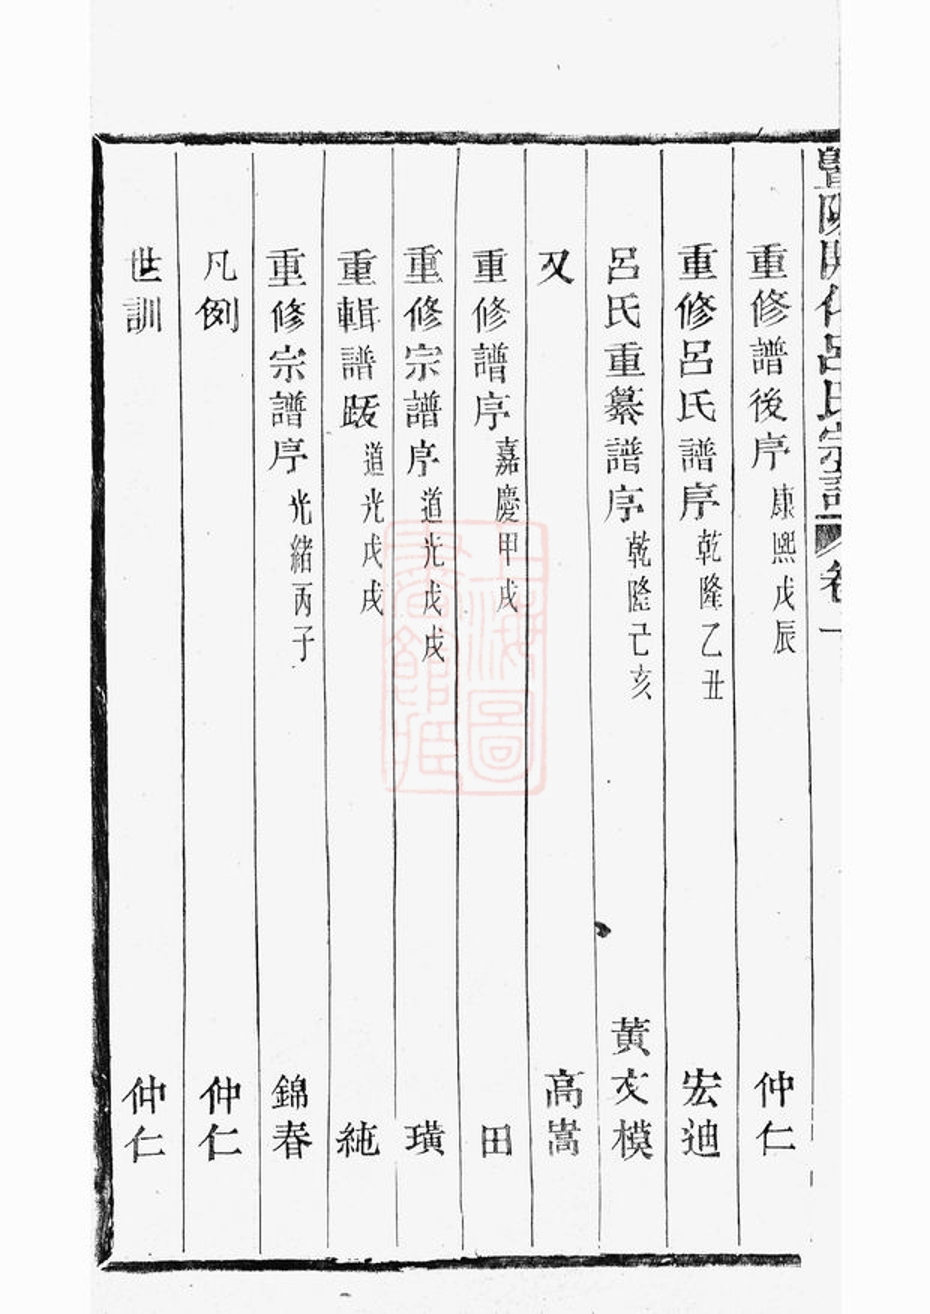 暨陽開化呂氏宗譜 卷一
重修譜後序 康熙戊辰 仲仁
重修呂氏譜序 乾隆乙丑 宏迪
呂氏重纂譜序 乾隆己亥 黃文模
又 高嵩
重修譜序 嘉慶甲戌 田
重修宗譜序 道光戊戌 璜
重輯譜跋 道光戊戌 純
重修宗譜序 光緒丙子 錦春
凡例 仲仁
世訓 仲仁
上海圖
書館藏